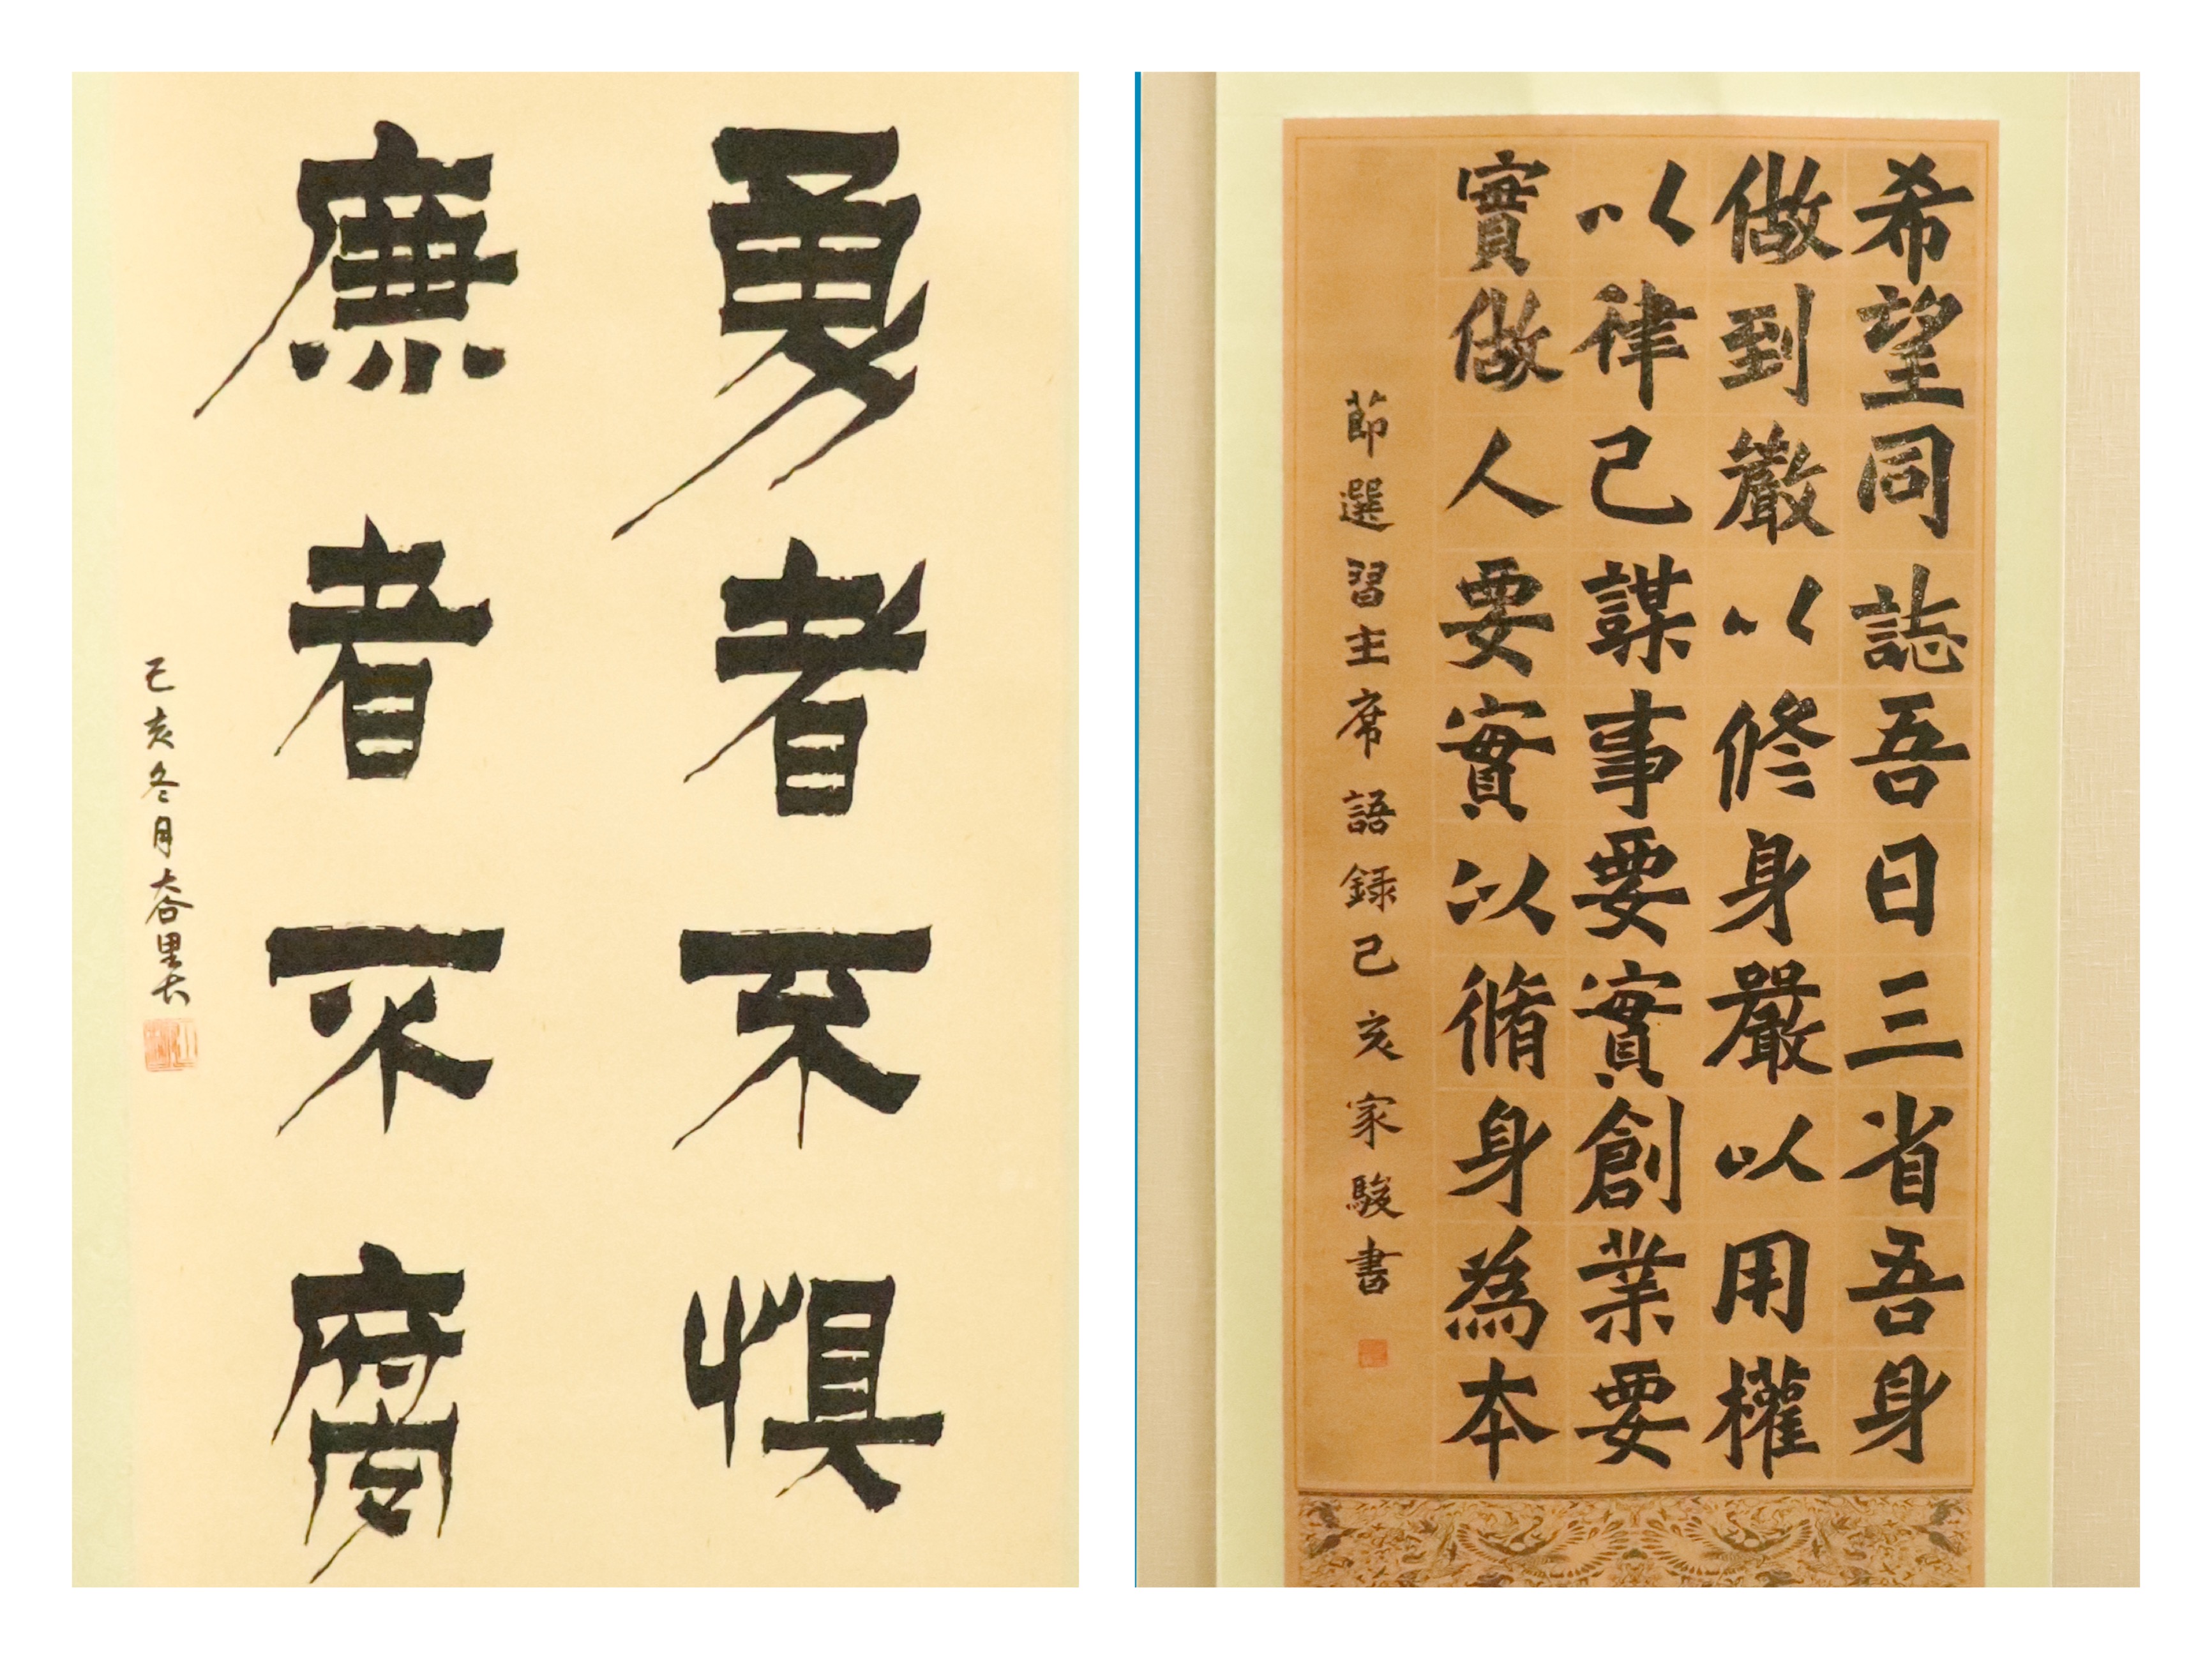 勇者不惧
廉者不腐
己亥冬月
希望同誌吾日三省吾身
做到嚴以修身嚴以用權
以律己謀事要實創業要
實做人要實以脩身為本
節選習主席語録己亥家駿書